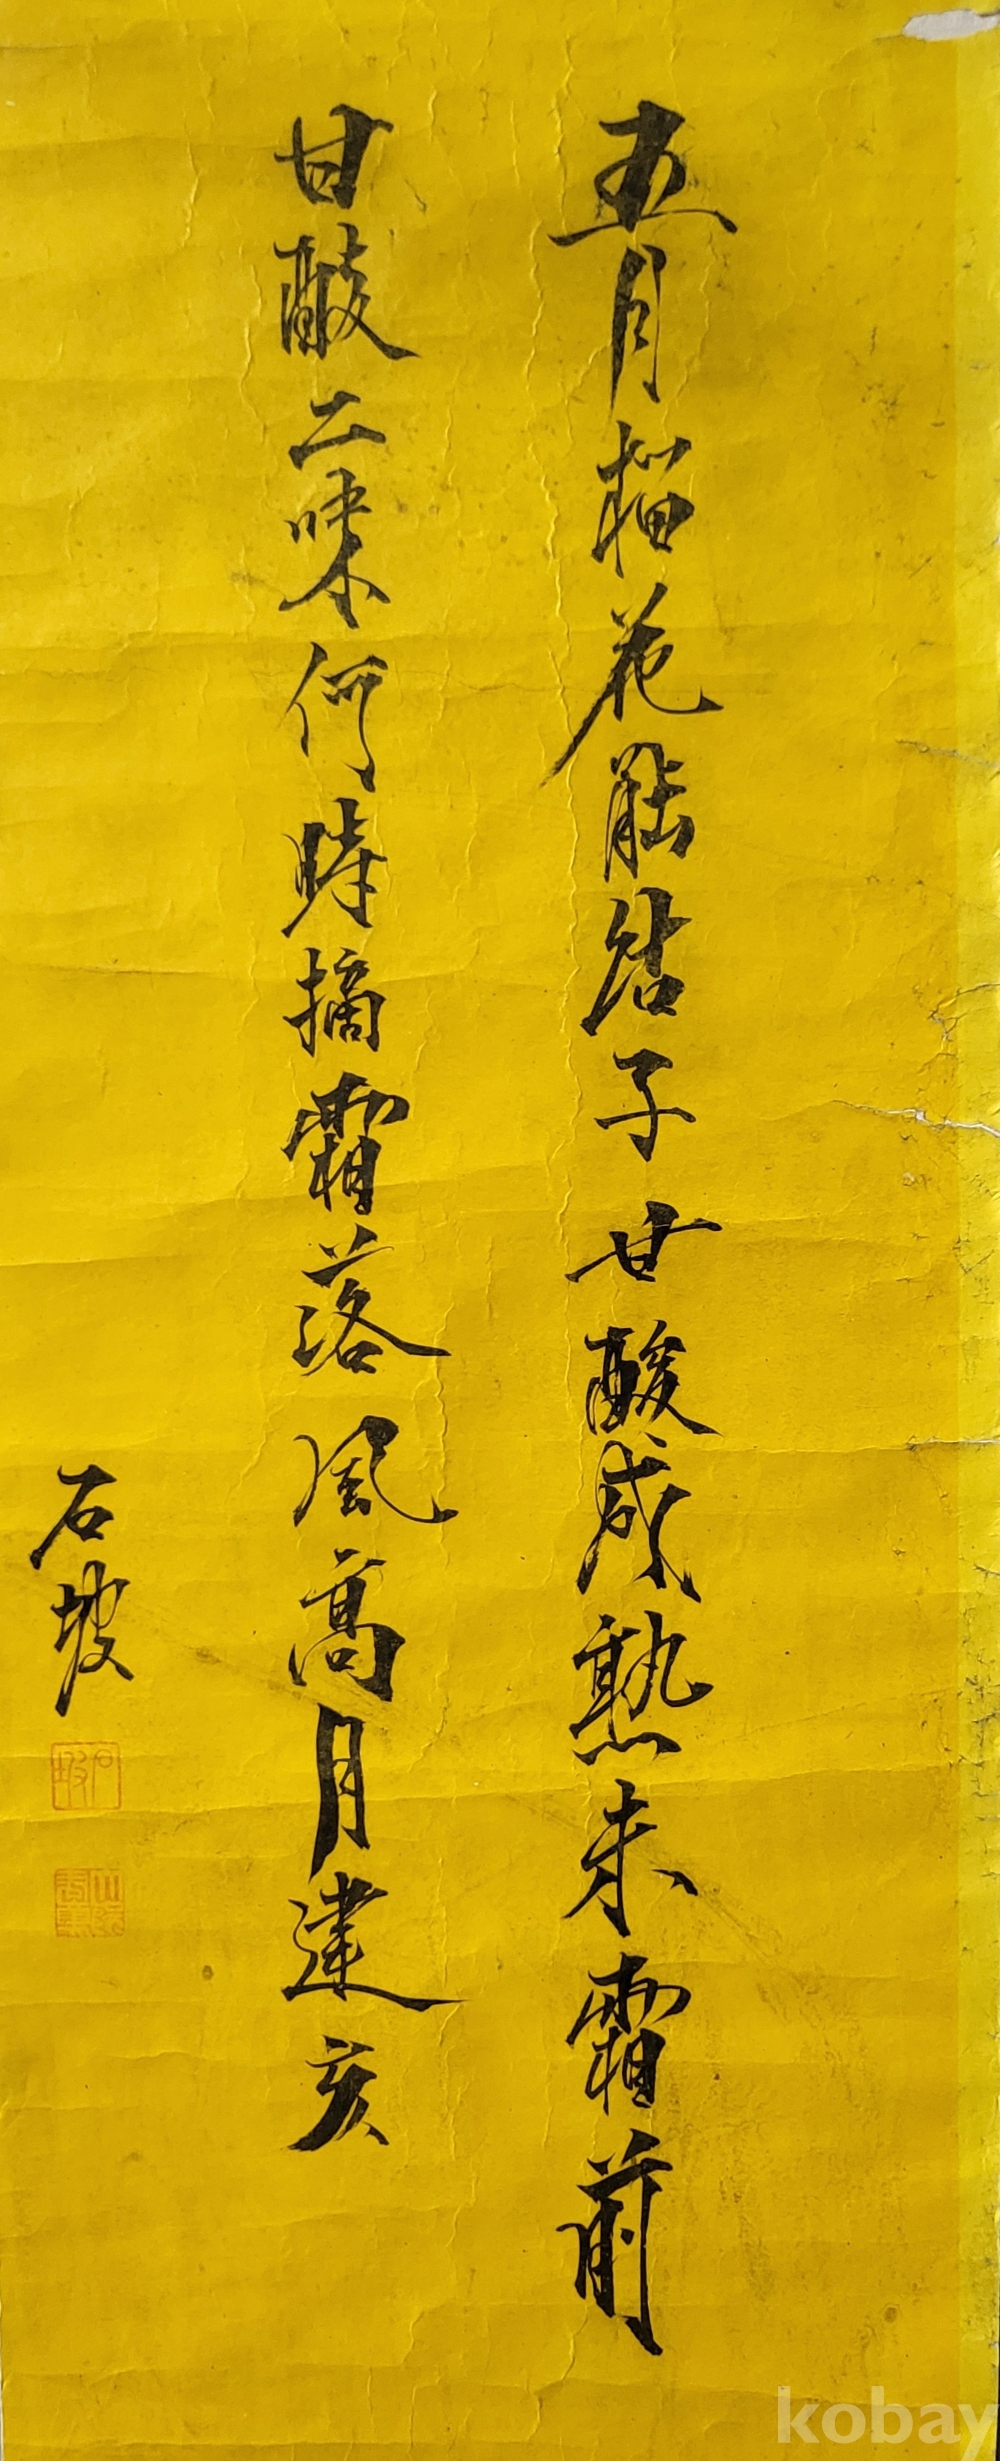 五月榴花能結子甘酸咸熟未霜前
甘酸二味何時摘霜落風高月建亥
石坡
kobay